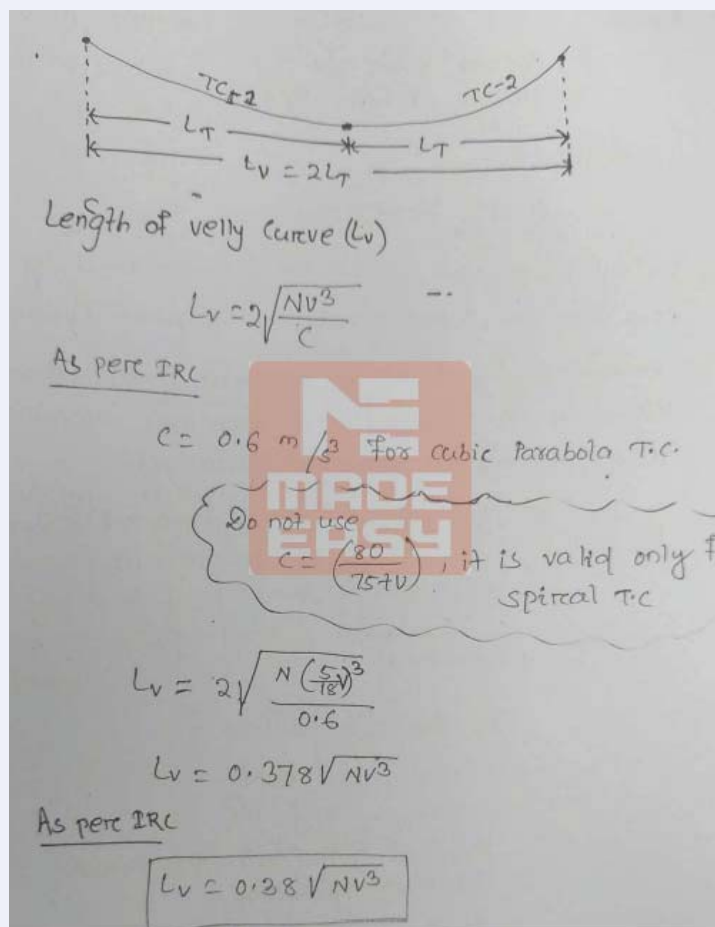 TC-2 TC-2
LT LT
Lv = 2LT
Length of velly Curve (Lv)
Lv = 2√(NV³/C)
As pere IRC
C = 0.6 m/s³ For cubic Parabola T.C.
Do not use
C = (80/75+V), it is valid only f
spireal T.C
Lv = 2√(N(5/18 V)³/0.6)
Lv = 0.378√NV³
As pere IRC
Lv = 0.38√NV³
MADE
EASY